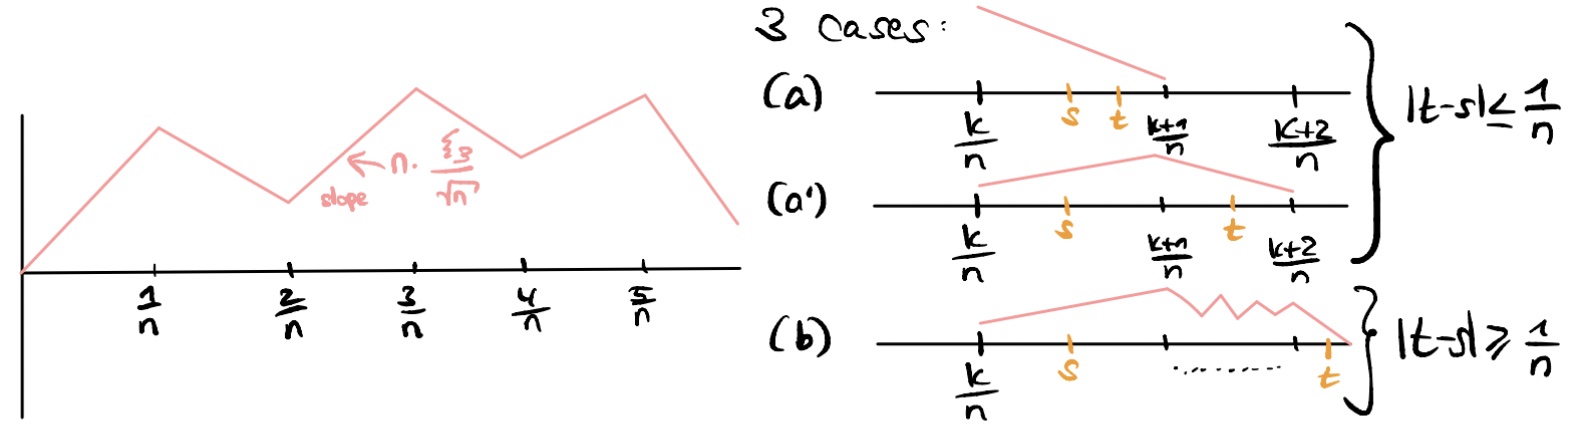 slope ← n · ξ₃/√n
1/n 2/n 3/n 4/n 5/n
3 cases:
(a) k/n s t k+1/n k+2/n
(a') k/n s k+1/n t k+2/n
|t-s| ≤ 1/n
(b) k/n s ........... t
|t-s| ≥ 1/n